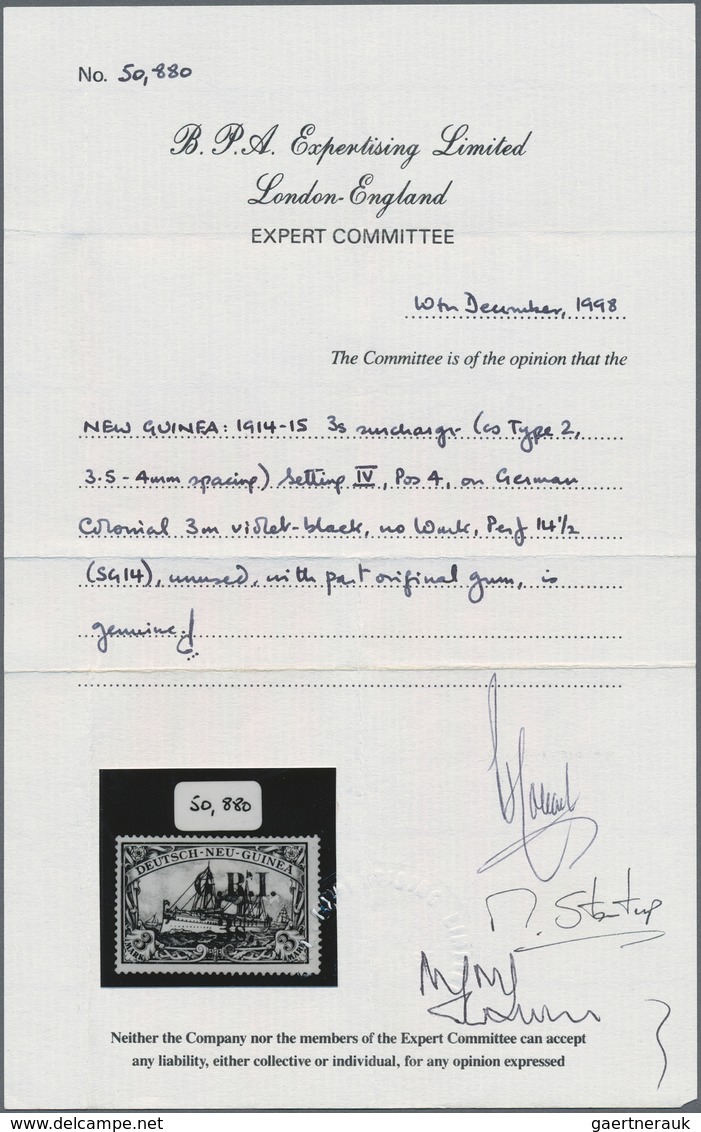 No. 50,880
B.P.A. Expertising Limited
London-England
EXPERT COMMITTEE
10th December, 1998
The Committee is of the opinion that the
NEW GUINEA: 1914-15 3s surcharge (as Type 2,
3.5-4mm spacing) Setting IV, Pos 4, on German
Colonial 3m violet-black, no Wmk, Perf 14½
(SG14), unused, with part original gum, is
genuine.
50,880
DEUTSCH-NEU-GUINEA
G.R.I.
3s
3 3
MARK MARK
Neither the Company nor the members of the Expert Committee can accept
any liability, either collective or individual, for any opinion expressed
gaertnerauk